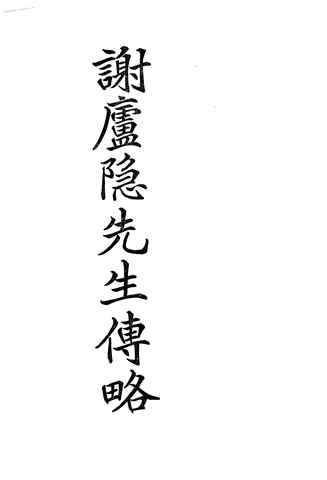 謝廬隐先生傳略